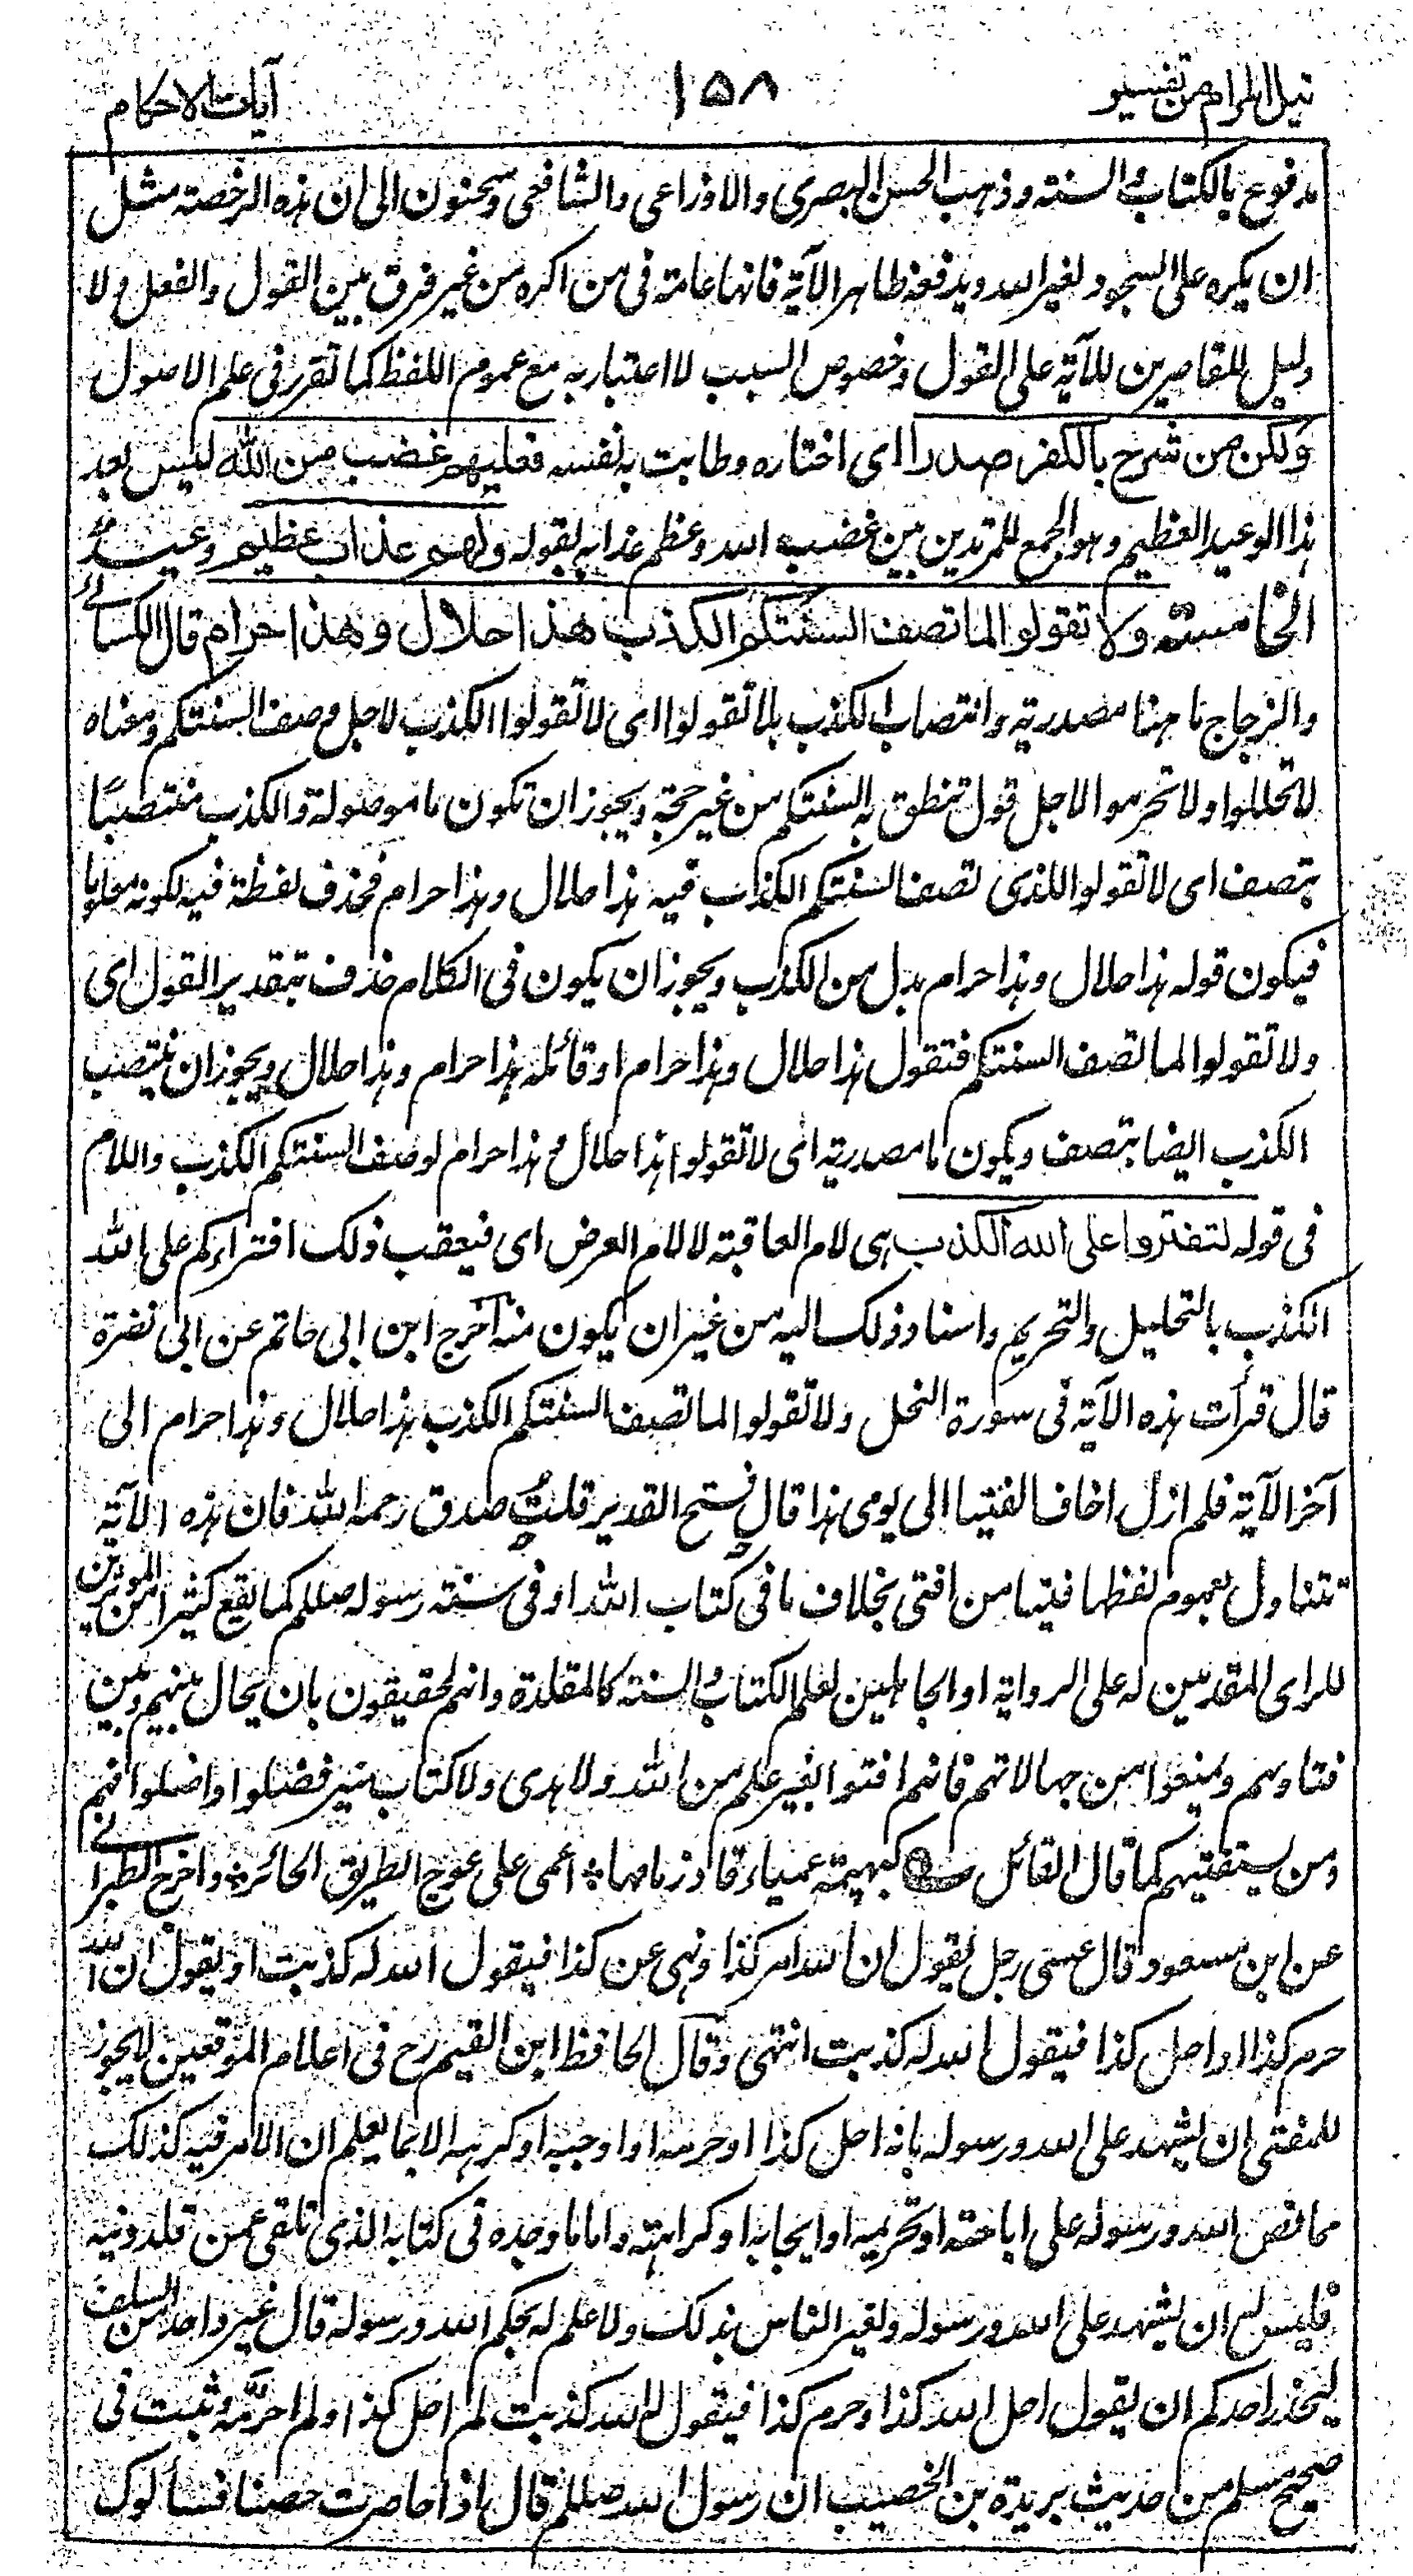 نيل المرام من تفسير ١٥٨ آيات الاحكام
مدفوع بالكتاب والسنة وذهب الحسن البصري والاوزاعي والشافعي وسحنون الى ان هذه الرخصة مثل
ان يكره على السجود لغير الله ويدفعه ظاهر الآية فانها عامة في من اكره من غير فرق بين القول والفعل ولا
دليل للقاصرين للآية على القول وخصوص السبب لا اعتبار به مع عموم اللفظ كما تقرر في علم الاصول
ولكن من شرح بالكفر صدرا اى اختاره وطابت به نفسه فعليهم غضب من الله ليس بعد
هذا الوعيد العظيم وهو الجمع للمرتدين بين غضب الله وعظم عذابه بقوله ولهم عذاب عظيم
الخامسة ولا تقولوا لما تصف السنتكم الكذب هذا حلال وهذا حرام قال الكسائي
والزجاج ما هنا مصدرية وانتصاب الكذب بلا تقولوا اى لا تقولوا الكذب لاجل وصف السنتكم ومعناه
لا تحللوا ولا تحرموا لاجل قول تنطق به السنتكم من غير حجة ويجوز ان تكون ما موصولة والكذب منتصبًا
بتصف اى لا تقولوا للذى تصف السنتكم الكذب فيه هذا حلال وهذا حرام فحذف لفظة فيه لكونه معلوما
فيكون قوله هذا حلال وهذا حرام بدل من الكذب ويجوز ان يكون في الكلام حذف بتقدير القول اى
ولا تقولوا لما تصف السنتكم فتقول هذا حلال وهذا حرام او قائلة هذا حرام وهذا حلال ويجوز ان ينتصب
الكذب ايضا بتصف ويكون ما مصدرية اى لا تقولوا هذا حلال وهذا حرام لوصف السنتكم الكذب واللام
في قوله لتفتروا على الله الكذب هى لام العاقبة لا لام العرض اى فيعقب ذلك افتراءكم على الله
الكذب بالتحليل والتحريم واسناد ذلك اليه من غير ان يكون منه اخرج ابن ابى حاتم عن ابى نضرة
قال قرأت هذه الآية في سورة النحل ولا تقولوا لما تصف السنتكم الكذب هذا حلال وهذا حرام الى
آخر الآية فلم ازل اخاف الفتيا الى يومى هذا قال فتح القدير قلت صدق رحمه الله فان هذه الآية
تتناول بعموم لفظها فتيا من افتى بخلاف ما في كتاب الله او في سنة رسوله صللم كما يقع كثيرا من الموثرين
للراى المقدمين له على الرواية او الجاهلين لعلم الكتاب والسنة كالمقلدة وانهم لحقيقون بان يحال بينهم وبين
فتاويهم ويمنعوا من جهالاتهم فانهم افتوا بغير علم من الله ولا هدى ولا كتاب منير فضلوا واضلوا فهم
ومن يستفتيهم كما قال القائل كبهيمة عمياء قاد زمامها * اعمى على عوج الطريق الحائر * واخرج الطبرانى
عن ابن مسعود قال عسى رجل يقول ان الله امر كذا ونهى عن كذا فيقول الله له كذبت او يقول ان الله
حرم كذا او احل كذا فيقول الله له كذبت انتهى وقال الحافظ ابن القيم رح في اعلام الموقعين لا يجوز
للمفتى ان يشهد على الله ورسوله بانه احل كذا او حرمه او اوجبه او كرهه الا بما يعلم ان الامر فيه كذلك
مما نص الله ورسوله على اباحته او تحريمه او ايجابه او كراهته واما ما وجده في كتابه الذى تلقى عمن قلد دينه
فليس له ان يشهد على الله ورسوله ولغير الناس بذلك ولا علم له بحكم الله ورسوله قال غير واحد من السلف
ليحذر احدكم ان يقول احل الله كذا وحرم كذا فيقول الله كذبت لم احل كذا ولم احرمه وثبت في
صحيح مسلم من حديث بريدة بن الخصيب ان رسول الله صللم قال اذا حاصرت حصنا فسألوك